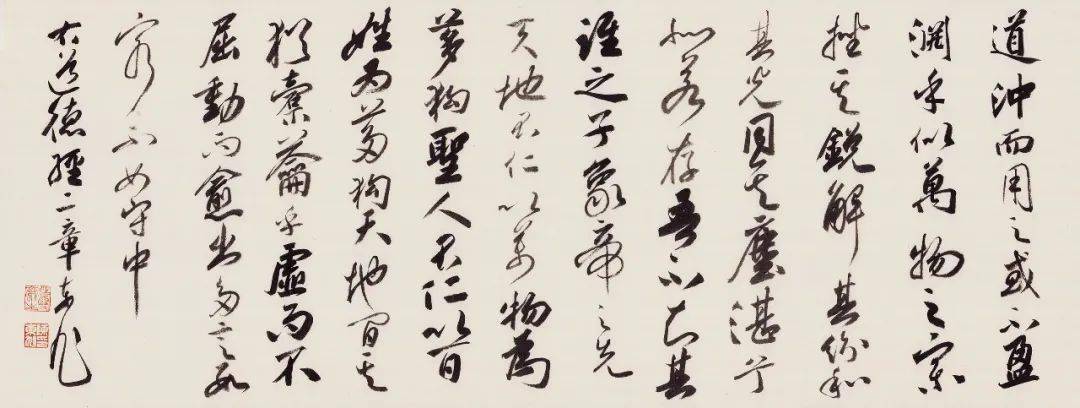 道沖而用之或不盈
渊乎似萬物之宗
挫其鋭解其紛和
其光同其塵湛兮
似若存吾不知其
誰之子象帝之先
天地不仁以萬物為
芻狗聖人不仁以百
姓為芻狗天地間其
猶橐籥乎虛而不
屈動而愈出多言數
窮不如守中
右道德經二章